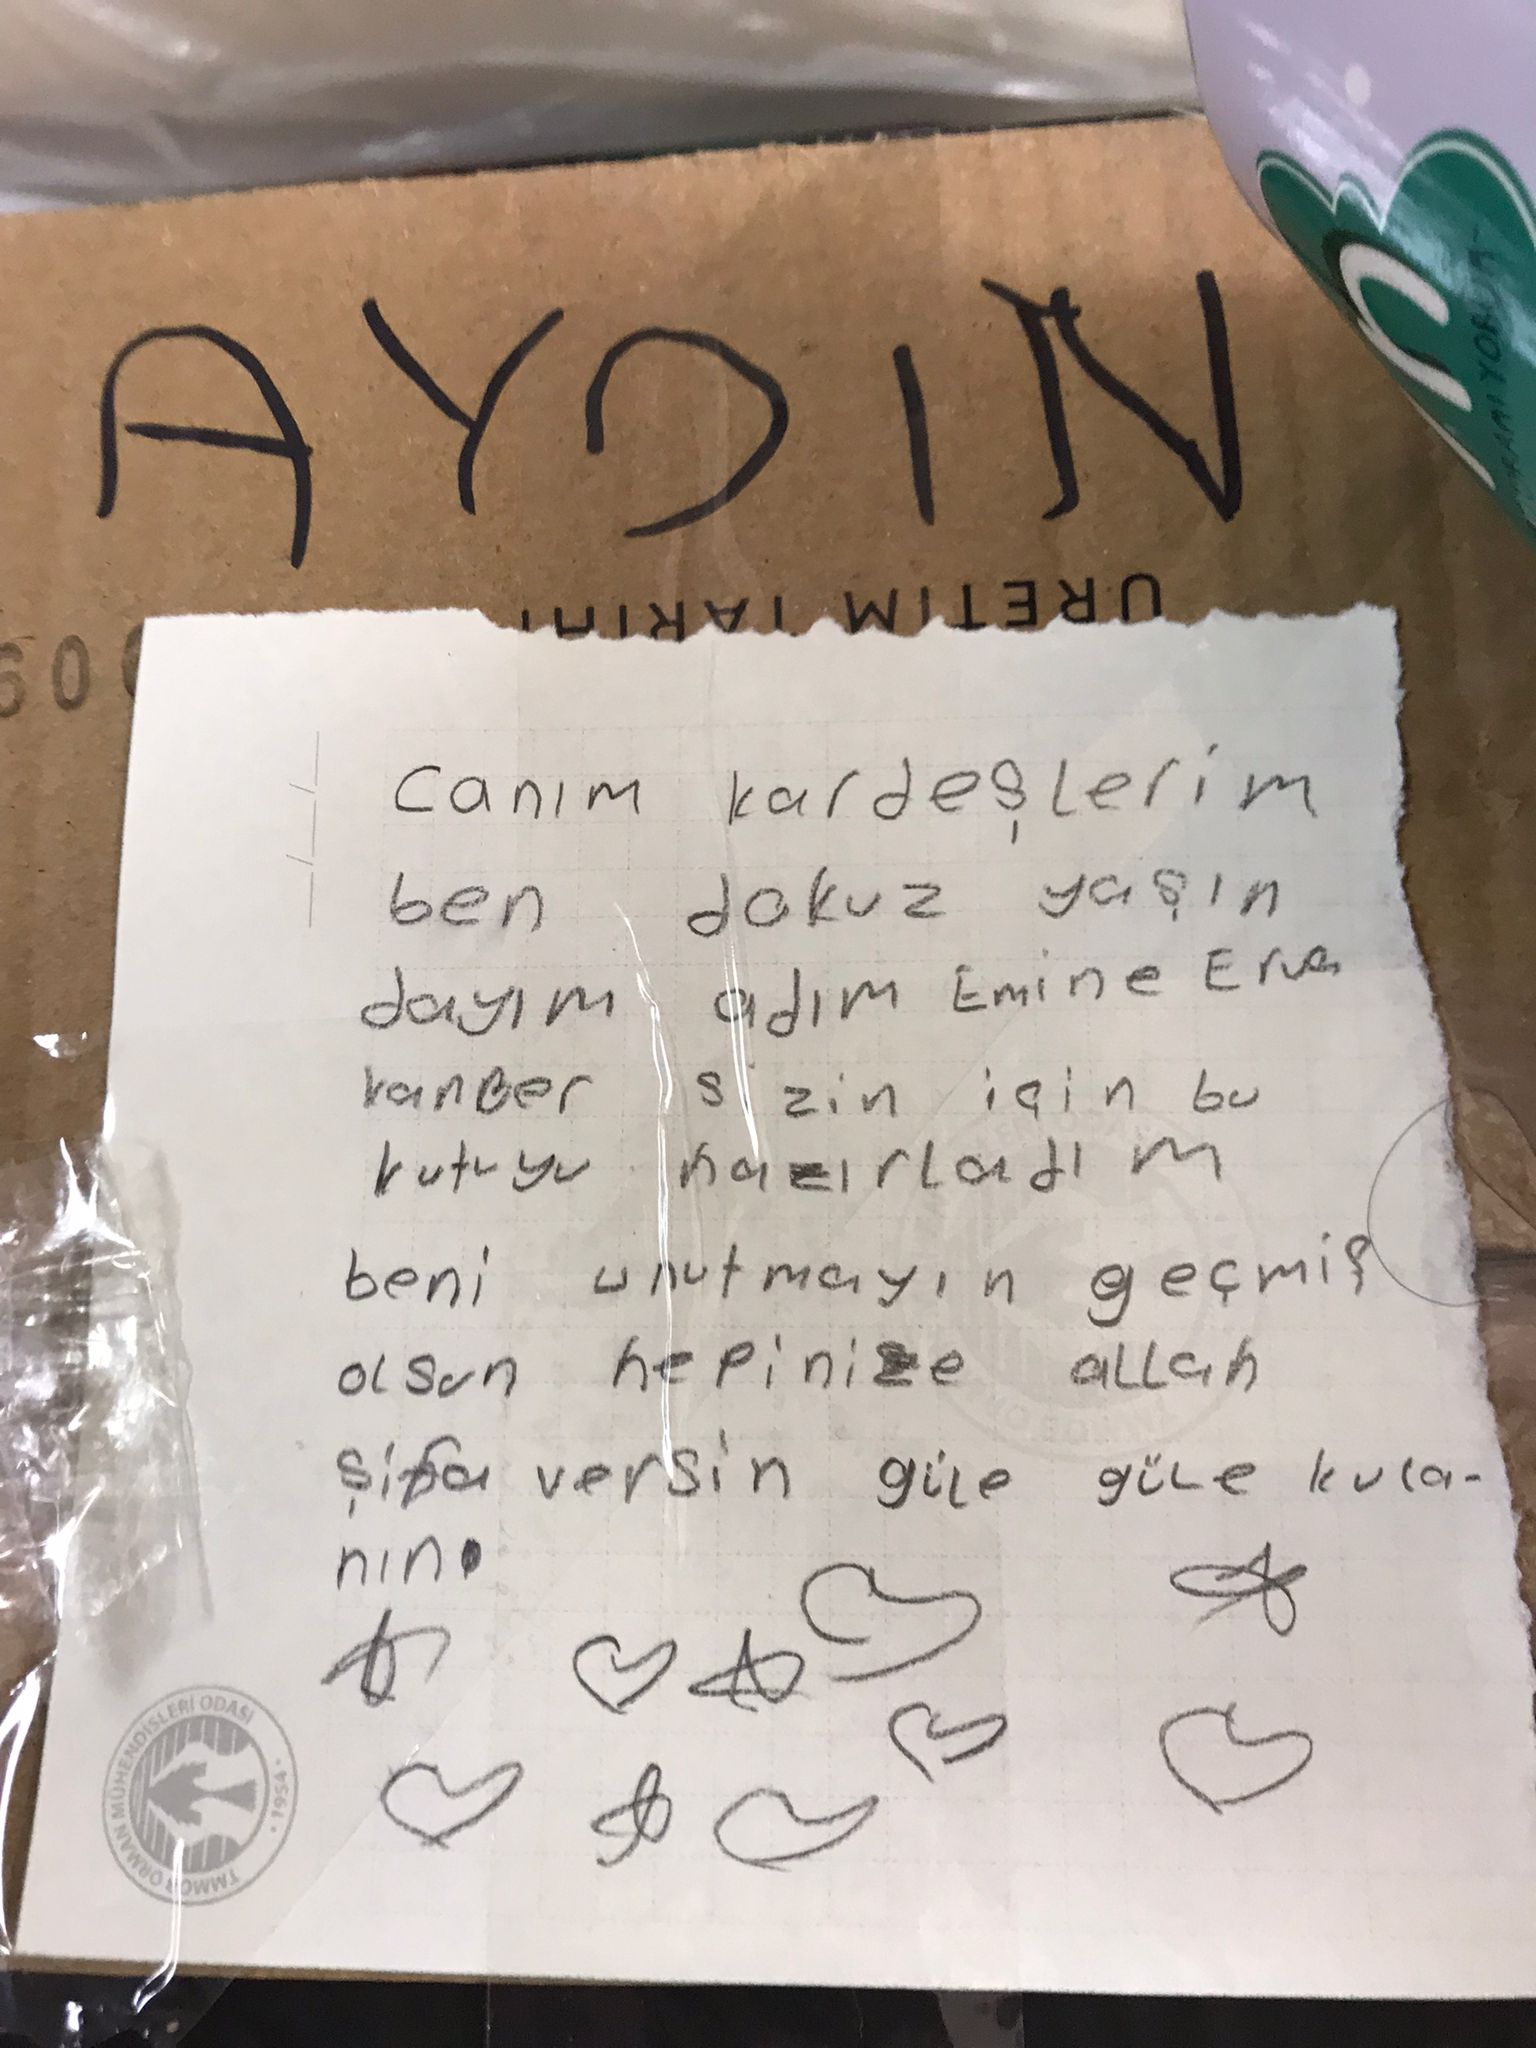 AYDIN
ÜRETİM TARİHİ
Canım kardeşlerim
ben dokuz yaşın
dayım adım Emine Erva
kanBer sizin için bu
kutuyu hazırladım
beni unutmayın geçmiş
olsun hepinize allah
şifa versin güle güle kula-
nın.
TMMOB ORMAN MÜHENDİSLERİ ODASI
1954